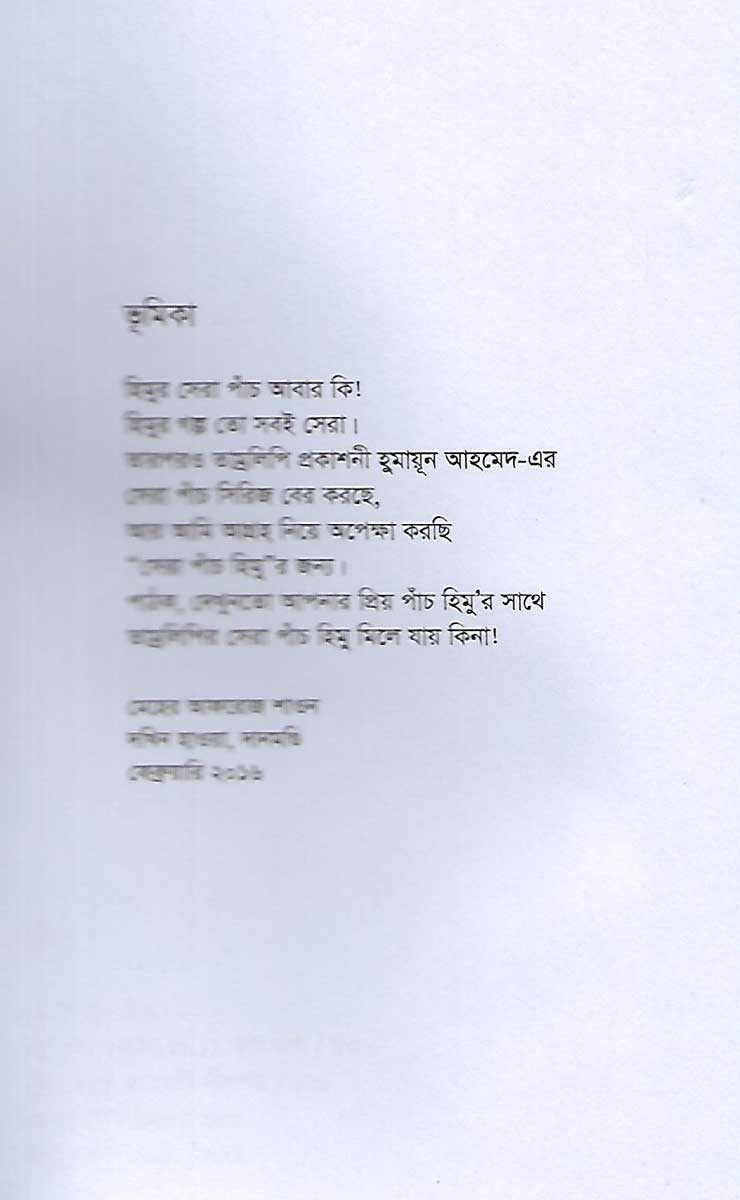 ভূমিকা
হিমুর সেরা পাঁচ আবার কি!
হিমুর গল্প তো সবই সেরা।
তারপরও তাম্রলিপি প্রকাশনী হুমায়ূন আহমেদ-এর
সেরা পাঁচ সিরিজ বের করছে,
আর আমি আগ্রহ নিয়ে অপেক্ষা করছি
“সেরা পাঁচ হিমু”র জন্য।
পাঠক, দেখুনতো আপনার প্রিয় পাঁচ হিমু’র সাথে
তাম্রলিপির সেরা পাঁচ হিমু মিলে যায় কিনা!
মেহের আফরোজ শাওন
দখিন হাওয়া, ধানমন্ডি
ফেব্রুয়ারি ২০১৬